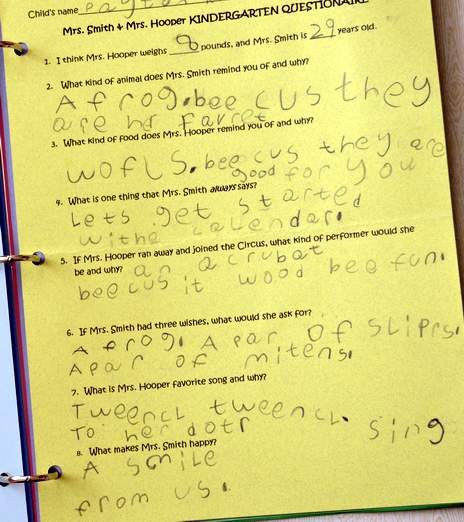 Child's name payton
Mrs. Smith & Mrs. Hooper KINDERGARTEN QUESTIONAIRE
1. I think Mrs. Hooper weighs 8 pounds, and Mrs. Smith is 29 years old.
2. What kind of animal does Mrs. Smith remind you of and why?
A frog. bee cus they
are her favret
3. What kind of food does Mrs. Hooper remind you of and why?
wofLS. bee cus they are
good for you
4. What is one thing that Mrs. Smith always says?
Lets get started
withe calendar.
5. If Mrs. Hooper ran away and joined the Circus, what kind of performer would she
be and why? an acrubat
bee cus it wood bee fun.
6. If Mrs. Smith had three wishes, what would she ask for?
A frog. A par of sliprs.
A par of mitens.
7. What is Mrs. Hooper favorite song and why?
Tweencl tweencl. sing
To her dotr
8. What makes Mrs. Smith happy?
A smile
from us.